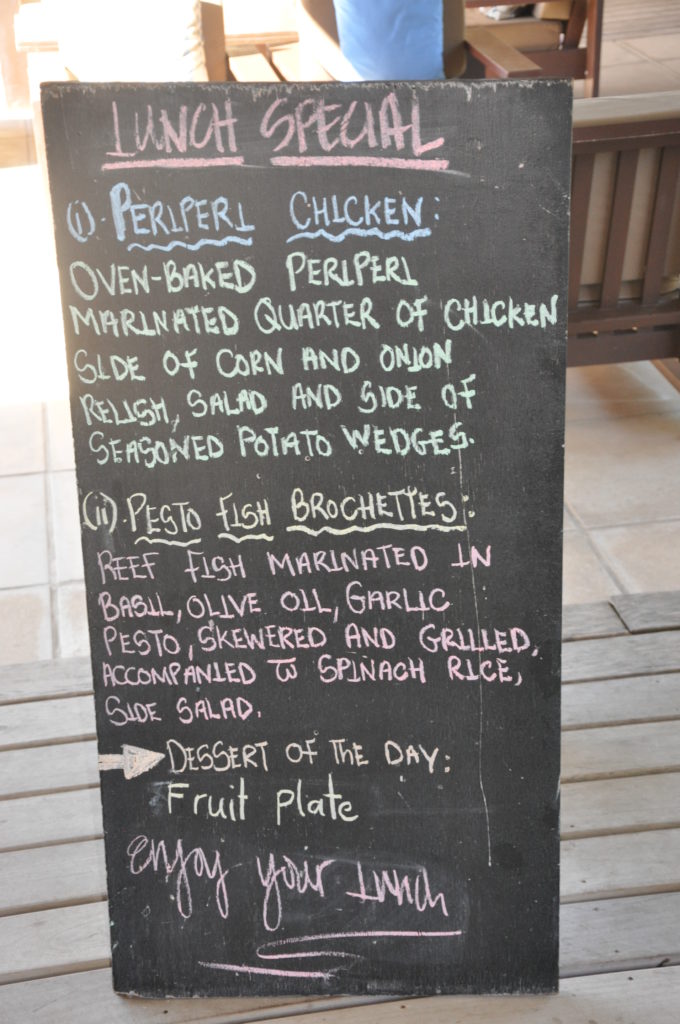 LUNCH SPECIAL
(i). PERIPERI CHICKEN:
OVEN-BAKED PERIPERI
MARINATED QUARTER OF CHICKEN
SIDE OF CORN AND ONION
RELISH, SALAD AND SIDE OF
SEASONED POTATO WEDGES.
(ii). PESTO FISH BROCHETTES:
REEF FISH MARINATED IN
BASIL, OLIVE OIL, GARLIC
PESTO, SKEWERED AND GRILLED,
ACCOMPANIED W SPINACH RICE,
SIDE SALAD.
DESSERT OF THE DAY:
Fruit plate
enjoy your lunch